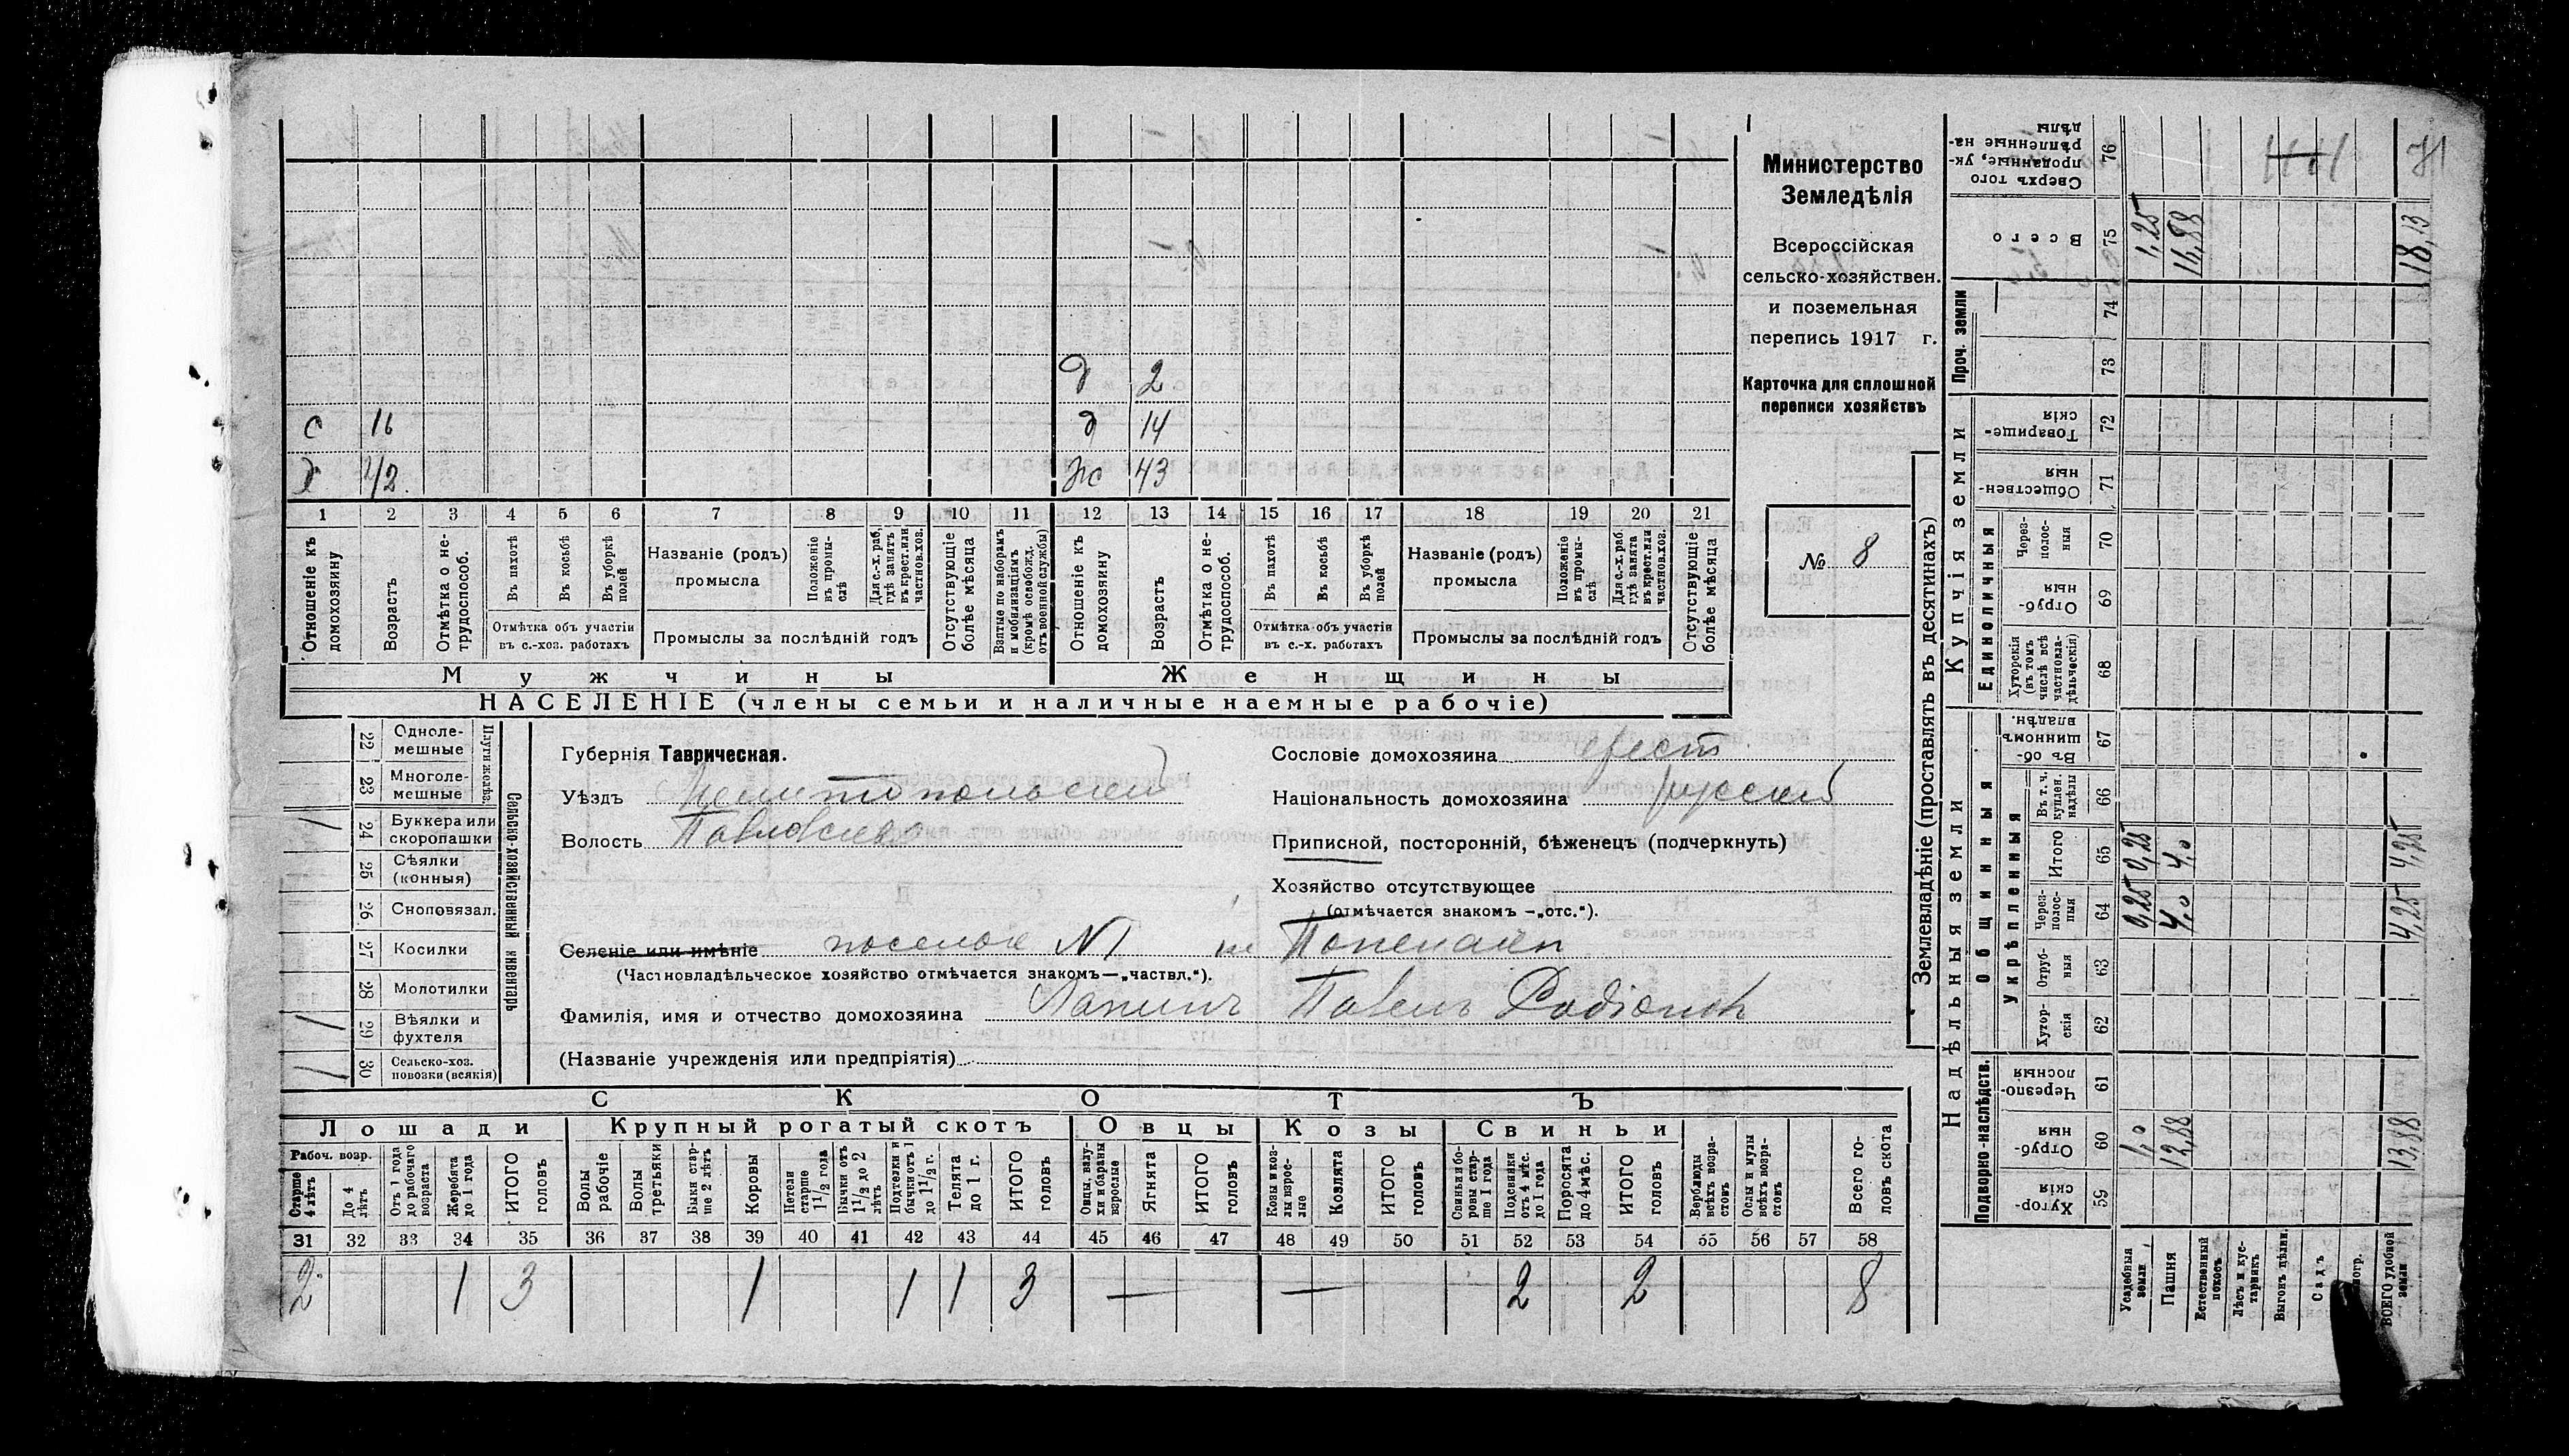 Министерство
Земледѣлія
Всероссійская
сельско-хозяйствен.
и поземельная
перепись 1917 г.
Карточка для сплошной
переписи хозяйствъ
№ 8
д 2
с 16 д 14
х 42. ж 43
1 2 3 4 5 6 7 8 9 10 11 12 13 14 15 16 17 18 19 20 21
Отношеніе къ домохозяину
Возрастъ
Отмѣтка о не-трудоспособ.
Въ пахотѣ
Въ косьбѣ
Въ уборкѣ полей
Отмѣтка объ участіи
въ с.-хоз. работахъ
Названіе (родъ)
промысла
Положеніе въ промы-слѣ
Для с.-х. раб., гдѣ занятъ въ крест. или частнов. хоз.
Промыслы за послѣдній годъ
Отсутствующіе болѣе мѣсяца
Взятые по наборамъ и мобилизаціямъ (кромѣ освобожд. отъ военной службы)
Отношеніе къ домохозяину
Возрастъ
Отмѣтка о не-трудоспособ.
Въ пахотѣ
Въ косьбѣ
Въ уборкѣ полей
Отмѣтка объ участіи
въ с.-х. работахъ
Названіе (родъ)
промысла
Положеніе въ промы-слѣ
Для с.-х. раб. гдѣ занята въ крест. или частнов. хоз.
Промыслы за послѣдній годъ
Отсутствующіе болѣе мѣсяца
Мужчины Женщины
НАСЕЛЕНІЕ (члены семьи и наличные наемные рабочіе)
Сельско-хозяйственный инвентарь
Плуги желѣз.
22 Одноле-мешные
23 Многоле-мешные
24 Буккера или скоропашки /
25 Сѣялки (конныя)
26 Сноповязал.
27 Косилки
28 Молотилки
29 Вѣялки и фухтеля /
30 Сельско-хоз. повозки (всякія) /
Губернія Таврическая.
Уѣздъ Мелитопольский
Волость Павловская
Сословіе домохозяина крест
Національность домохозяина русский
Приписной, посторонній, бѣженецъ (подчеркнуть)
Хозяйство отсутствующее
(отмѣчается знакомъ —„отс.“).
Селеніе или имѣніе поселок №1
(Частновладѣльческое хозяйство отмѣчается знакомъ—„частвл.“).
Фамилія, имя и отчество домохозяина Лапинъ Павелъ Родіонов
(Названіе учрежденія или предпріятія)
СКОТЪ
Лошади Крупный рогатый скотъ Овцы Козы Свиньи
Рабоч. возр.
Старше 4 лѣтъ
До 4 лѣтъ
Отъ 1 года до рабочаго возраста
Жеребята до 1 года
ИТОГО головъ
Волы рабочіе
Волы третьяки
Быки стар-ше 2 лѣтъ
Коровы
Нетели старше 1 1/2 года
Бычки отъ 1 1/2 до 2 лѣтъ
Подтелки и бычки отъ 1 до 1 1/2 г.
Телята до 1 г.
ИТОГО головъ
Овцы, валу-хи и бараны взрослые
Ягнята
ИТОГО головъ
Козы и коз-лы взрос-лые
Козлята
ИТОГО головъ
Свиньи и бо-ровы стар-ше 1 года
Подсвинки отъ 4 мѣс. до 1 года
Поросята до 4 мѣс.
ИТОГО головъ
Верблюды всѣхъ возра-стовъ
Ослы и мулы всѣхъ возра-стовъ
Всего го-ловъ скота
31 32 33 34 35 36 37 38 39 40 41 42 43 44 45 46 47 48 49 50 51 52 53 54 55 56 57 58
2 1 3 1 1 1 3 — — 2 2 8
Землевладѣніе (проставлять въ десятинахъ)
Надѣльныя земли
Подворно-наслѣдств.
Хутор-скія 59
Отруб-ныя 60
Черезпо-лосныя 61
Общинныя
Укрѣпленныя
Хутор-скія 62
Отруб-ныя 63
Через-полос-ныя 64
Итого 65
Въ т. ч. куплен. надѣлы 66
Въ об-щинномъ владѣн. 67
Купчія земли
Единоличныя
Хуторскія (въ томъ числѣ всѣ частновла-дѣльческія) 68
Отруб-ныя 69
Через-полос-ныя 70
Обществен-ныя 71
Товарище-скія 72
Проч. земли
73 74
Всего 75
Сверхъ того проданные, ук-рѣпленные на-дѣлы 76
Усадебныя земли 1,0 0,25 0,25 1,25
Пашня 12,88 4,0 4,0 16,88
Естественный покосъ
Лѣсъ и кус-тарникъ
Выгонъ цѣлин.
Садъ
ВСЕГО удобной земли 13,88 4,25 4,25 18,13